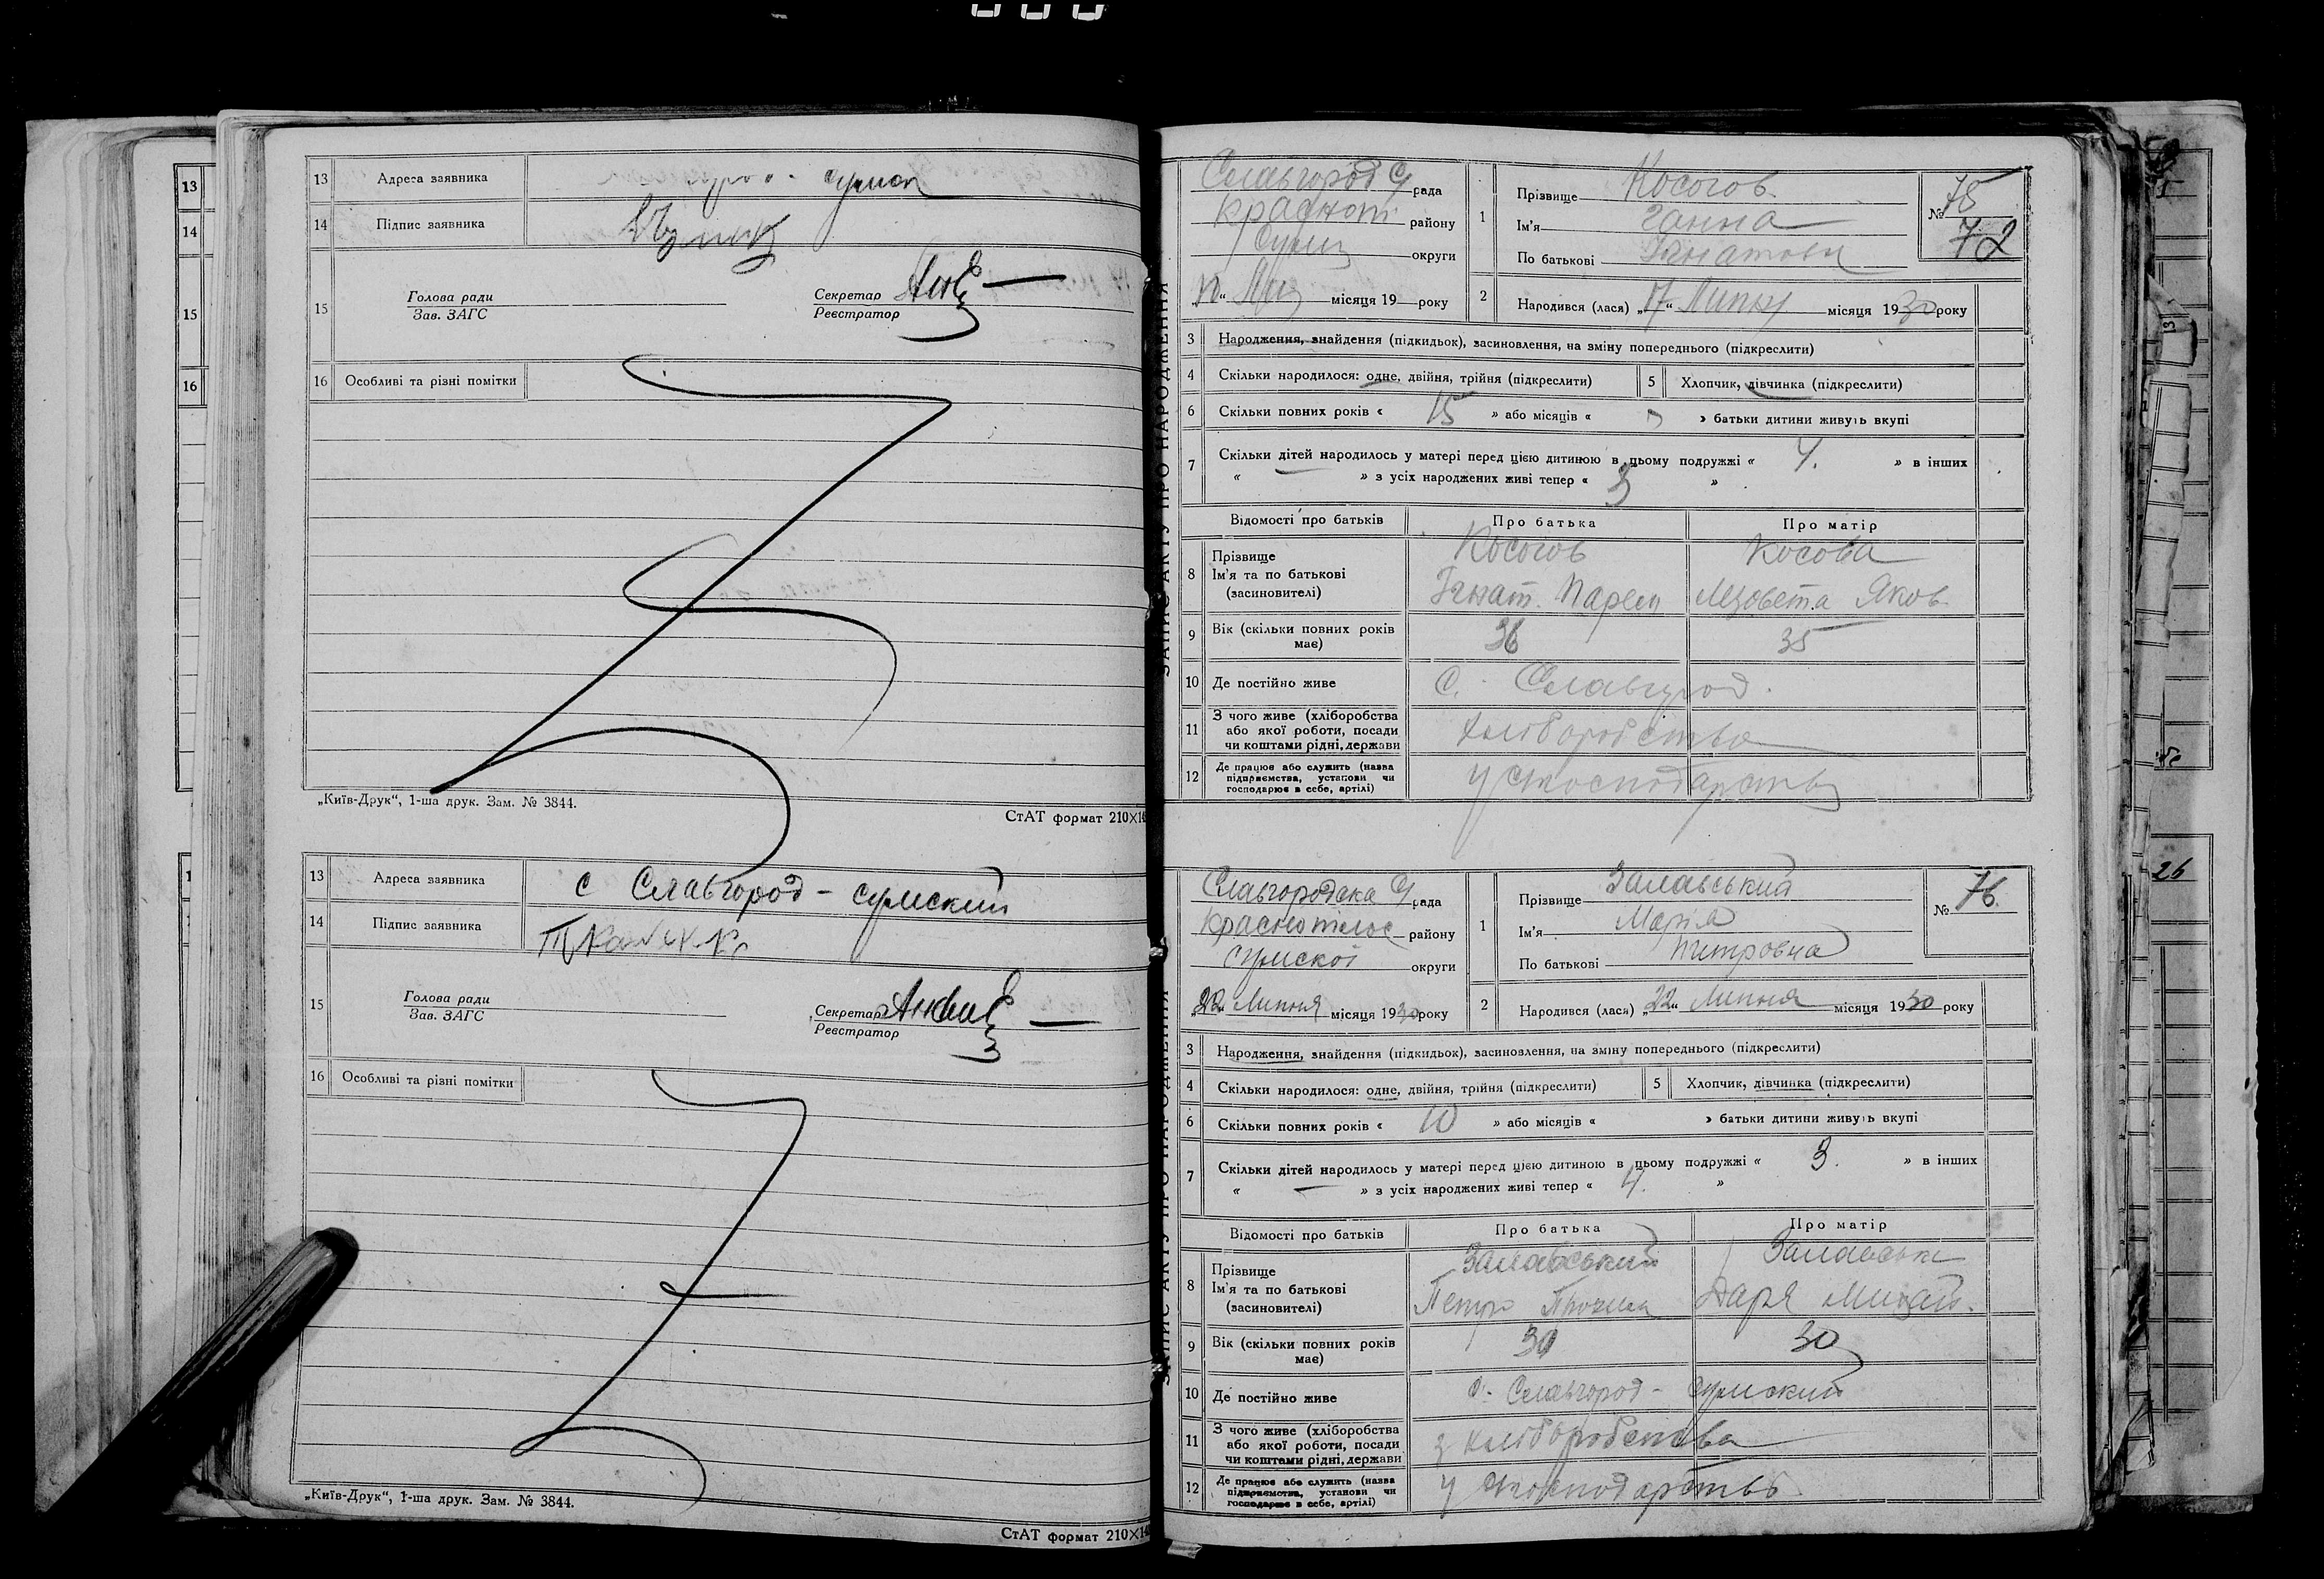 13 Адреса заявника
14 Підпис заявника
15 Голова ради
Зав. ЗАГС
Секретар
Реєстратор
16 Особливі та різні помітки
„Київ-Друк“, 1-ша друк. Зам. № 3844.
СтАТ формат 210×14
13 Адреса заявника с Славгород - сумский
14 Підпис заявника
15 Голова ради
Зав. ЗАГС
Секретар
Реєстратор
16 Особливі та різні помітки
„Київ-Друк“, 1-ша друк. Зам. № 3844.
СтАТ формат 210×14
ЗАПИС АКТУ ПРО НАРОДЖЕННЯ
Славгород С/ рада
району
округи
місяця 19 року
1 Прізвище Косогов
Ім'я Ганна
По батькові
№ 75
72
2 Народився (лася) „17“ місяця 1930 року
3 Народження, знайдення (підкидьок), засиновлення, на зміну попереднього (підкреслити)
4 Скільки народилося: одне, двійня, трійня (підкреслити) 5 Хлопчик, дівчинка (підкреслити)
6 Скільки повних років « 15 » або місяців « » батьки дитини живуть вкупі
7 Скільки дітей народилось у матері перед цією дитиною в цьому подружжі « 4. » в інших
« — » з усіх народжених живі тепер « 3 »
Відомості про батьків Про батька Про матір
8 Прізвище Косогов Косова
Ім'я та по батькові
(засиновителі) Гнат. Яков
9 Вік (скільки повних років має) 36 35
10 Де постійно живе с. Славгород.
11 З чого живе (хліборобства або якої роботи, посади чи коштами рідні, держави хліборобства
12 Де працює або служить (назва підприємства, установи чи господарює в себе, артілі)
ЗАПИС АКТУ ПРО НАРОДЖЕННЯ
Славгородска С/ рада
району
Сумскої округи
„22“ Липня місяця 1930 року
1 Прізвище Залавський
Ім'я Марія
По батькові Питровна
№ 76.
2 Народився (лася) „22“ Липня місяця 1930 року
3 Народження, знайдення (підкидьок), засиновлення, на зміну попереднього (підкреслити)
4 Скільки народилося: одне, двійня, трійня (підкреслити) 5 Хлопчик, дівчинка (підкреслити)
6 Скільки повних років « 10 » або місяців « » батьки дитини живуть вкупі
7 Скільки дітей народилось у матері перед цією дитиною в цьому подружжі « 3. » в інших
« — » з усіх народжених живі тепер « 4. »
Відомості про батьків Про батька Про матір
8 Прізвище Залавський
Ім'я та по батькові
(засиновителі) Петро Даря Михай.
9 Вік (скільки повних років має) 30
10 Де постійно живе с. Славгород - сумский
11 З чого живе (хліборобства або якої роботи, посади чи коштами рідні, держави з хліборобства
12 Де працює або служить (назва підприємства, установи чи господарює в себе, артілі)